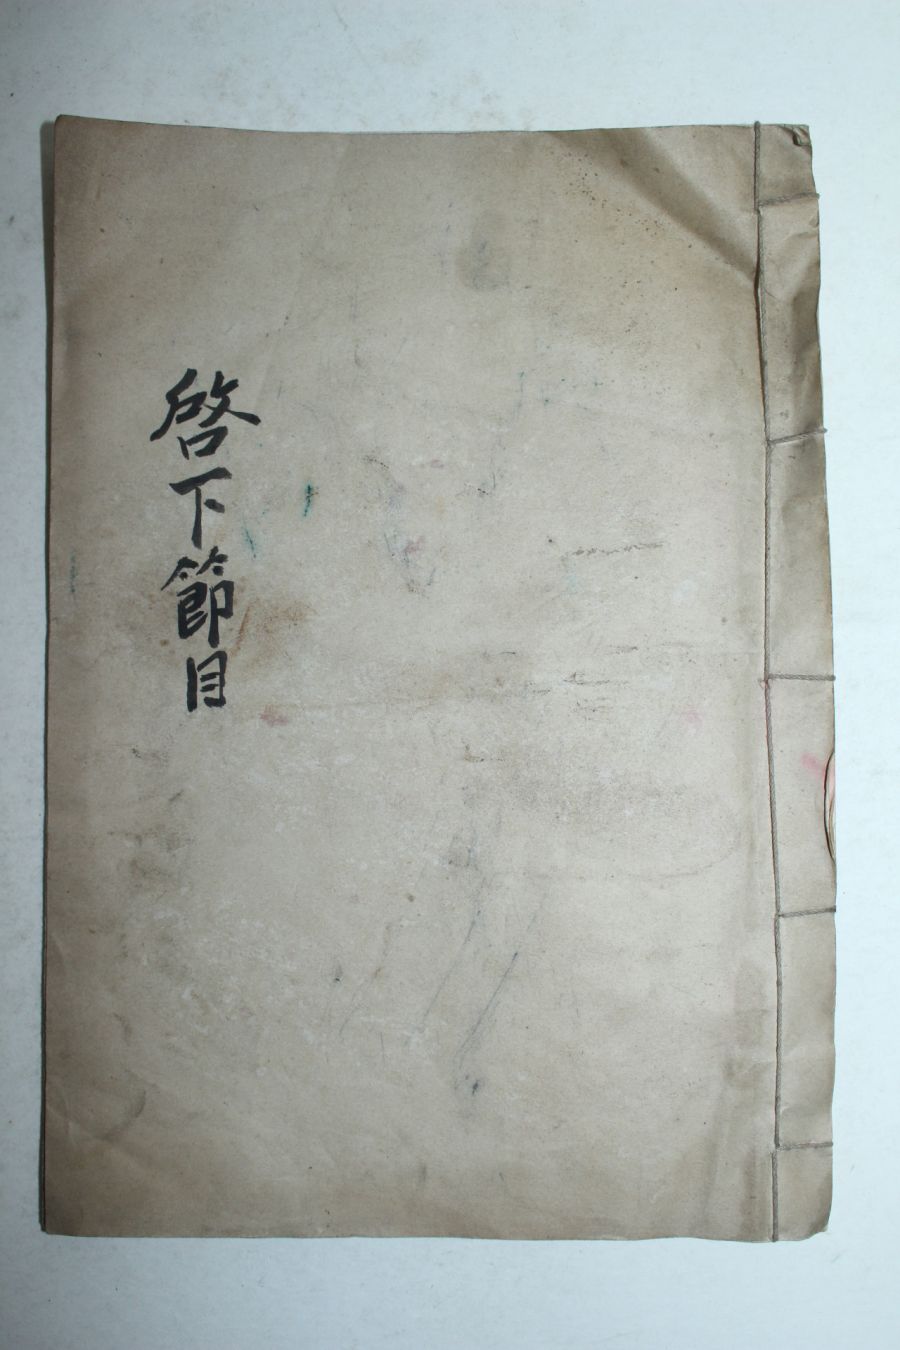 啓下節目